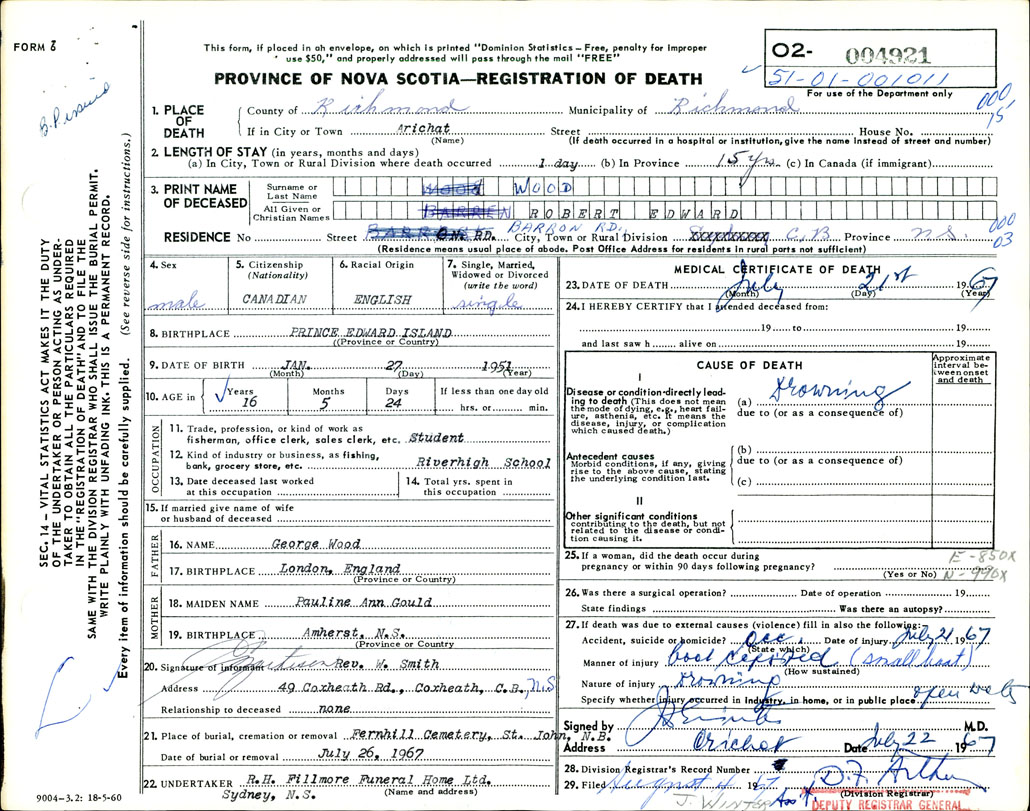 FORM 8
This form, if placed in an envelope, on which is printed "Dominion Statistics – Free, penalty for improper
use $50," and properly addressed will pass through the mail "FREE"
PROVINCE OF NOVA SCOTIA—REGISTRATION OF DEATH
O2- 004921
51-01-001011
For use of the Department only
000
15
1. PLACE OF DEATH
County of Richmond Municipality of Richmond
If in City or Town Arichat Street House No.
(Name) (If death occurred in a hospital or institution, give the name instead of street and number)
2. LENGTH OF STAY (in years, months and days)
(a) In City, Town or Rural Division where death occurred 1 day (b) In Province 15 yrs. (c) In Canada (if immigrant)
3. PRINT NAME OF DECEASED
Surname or Last Name WOOD
All Given or Christian Names ROBERT EDWARD
RESIDENCE No Street RD. BARRON RD., City, Town or Rural Division C.B. Province N.S.
000
03
(Residence means usual place of abode. Post Office Address for residents in rural parts not sufficient)
4. Sex
male
5. Citizenship (Nationality)
CANADIAN
6. Racial Origin
ENGLISH
7. Single, Married, Widowed or Divorced (write the word)
single
8. BIRTHPLACE PRINCE EDWARD ISLAND
(Province or Country)
9. DATE OF BIRTH JAN. 27 1951
(Month) (Day) (Year)
10. AGE in Years Months Days If less than one day old
16 5 24 hrs. or min.
OCCUPATION
11. Trade, profession, or kind of work as
fisherman, office clerk, sales clerk, etc. Student
12. Kind of industry or business, as fishing,
bank, grocery store, etc. Riverhigh School
13. Date deceased last worked
at this occupation
14. Total yrs. spent in
this occupation
15. If married give name of wife
or husband of deceased
FATHER
16. NAME George Wood
17. BIRTHPLACE London, England
(Province or Country)
MOTHER
18. MAIDEN NAME Pauline Ann Gould
19. BIRTHPLACE Amherst, N.S.
(Province or Country
20. Signature of informant Rev. W. Smith
Address 49 Coxheath Rd., Coxheath, C.B., N.S
Relationship to deceased none
21. Place of burial, cremation or removal Fernhill Cemetery, St. John, N.B.
Date of burial or removal July 26, 1967
22. UNDERTAKER R.H. Fillmore Funeral Home Ltd.
Sydney, N.S. (Name and address)
MEDICAL CERTIFICATE OF DEATH
23. DATE OF DEATH July 21st 1967
(Month) (Day) (Year)
24. I HEREBY CERTIFY that I attended deceased from:
19 to 19
and last saw h alive on 19
CAUSE OF DEATH
Approximate interval between onset and death
I
Disease or condition directly leading to death (This does not mean the mode of dying, e.g., heart failure, asthenia, etc. It means the disease, injury, or complication which caused death.)
(a) Drowning
due to (or as a consequence of)
Antecedent causes
Morbid conditions, if any, giving rise to the above cause, stating the underlying condition last.
(b)
due to (or as a consequence of)
(c)
II
Other significant conditions
contributing to the death, but not related to the disease or condition causing it.
25. If a woman, did the death occur during
pregnancy or within 90 days following pregnancy?
(Yes or No)
E-850X
N-990X
26. Was there a surgical operation? Date of operation 19
State findings Was there an autopsy?
27. If death was due to external causes (violence) fill in also the following:
Accident, suicide or homicide? acc. Date of injury July 21 1967
(State which)
Manner of injury boat (small boat)
(How sustained)
Nature of injury Drowning
Specify whether injury occurred in Industry, in home, or in public place open
Signed by M.D.
Address Arichat Date July 22 1967
28. Division Registrar's Record Number
29. Filed August 4 1967 D.F.
(Division Registrar)
DEPUTY REGISTRAR GENERAL
SEC. 14 – VITAL STATISTICS ACT MAKES IT THE DUTY
OF THE UNDERTAKER OR PERSON ACTING AS UNDER-
TAKER TO OBTAIN ALL THE PARTICULARS REQUIRED
IN THE "REGISTRATION OF DEATH" AND TO FILE THE
SAME WITH THE DIVISION REGISTRAR WHO SHALL ISSUE THE BURIAL PERMIT.
WRITE PLAINLY WITH UNFADING INK. THIS IS A PERMANENT RECORD.
Every item of information should be carefully supplied. (See reverse side for instructions.)
9004-3.2: 18-5-60